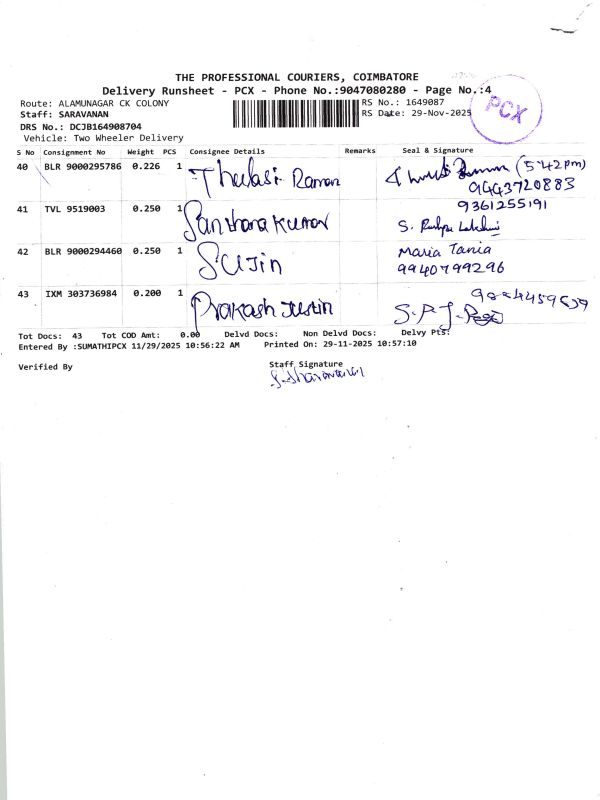 THE PROFESSIONAL COURIERS, COIMBATORE
Delivery Runsheet - PCX - Phone No.:9047080280 - Page No.:4
Route: ALAMUNAGAR CK COLONY RS No.: 1649087
Staff: SARAVANAN RS Date: 29-Nov-2025
DRS No.: DCJB164908704
Vehicle: Two Wheeler Delivery
PCX
S No Consignment No Weight PCS Consignee Details Remarks Seal & Signature
40 BLR 9000295786 0.226 1 Thulasi Raman (5:42pm)
9443720883
9361255191
41 TVL 9519003 0.250 1 Santhana Kumar S. Pushpa Lakshmi
42 BLR 9000294460 0.250 1 SUJin Maria Tania
9940799296
43 IXM 303736984 0.200 1 Prakash Justin S.P.J.
Tot Docs: 43 Tot COD Amt: 0.00 Delvd Docs: Non Delvd Docs: Delvy Pts:
Entered By :SUMATHIPCX 11/29/2025 10:56:22 AM Printed On: 29-11-2025 10:57:10
Verified By Staff Signature